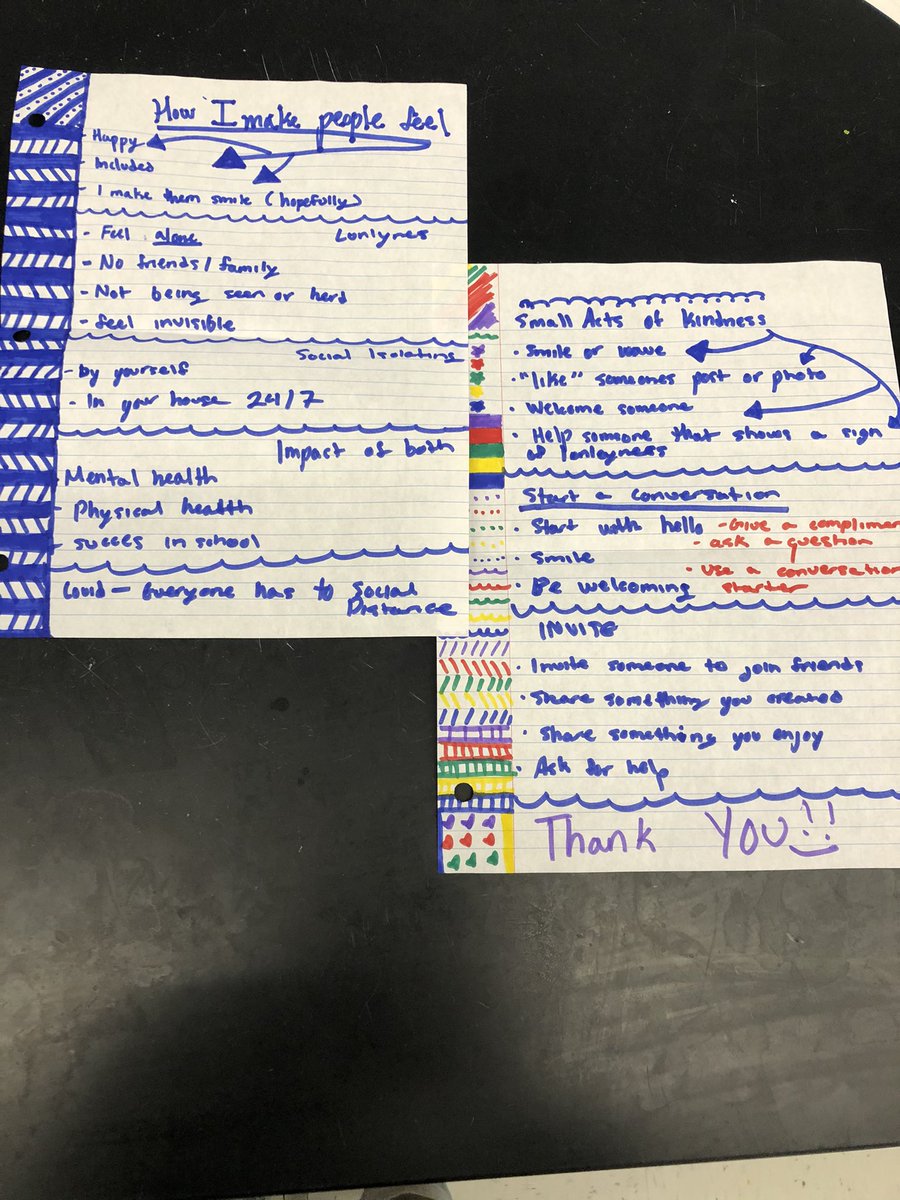 How I make people feel
- Happy
- Included
- I make them smile (hopefully)
Lonlynes
- Feel alone
- No friends / family
- Not being seen or herd
- feel invisible
Social Isolating
- by yourself
- In your house 24/7
Impact of both
Mental health
- Physical health
- succes in school
Covid - Everyone has to Social
Distance
Small Acts of Kindness
• Smile or wave
• "like" someones post or photo
• Welcome someone
• Help someone that shows a sign
of lonlyness
Start a conversation
• Start with hello - Give a complimen
- ask a question
• Smile
• Use a conversation
starter
• Be welcoming
INVITE
• Invite someone to join friends
• Share something you created
• Share something you enjoy
• Ask for help
Thank YOU!!